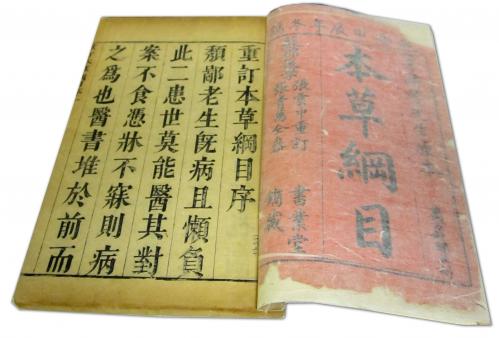 辰年冬
本草綱目
張雲中重訂
書業堂
重訂本草綱目序
頹鄗老生旣病且懶負
此二患世莫能醫其對
案不食憑牀不寐則病
之爲也醫書堆於前而